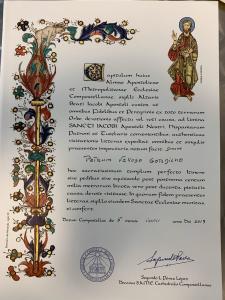 Capitulum huius
Almae Apostolicae
et Metropolitanae Ecclesiae
Compostellanae, sigilli Altaris
Beati Iacobi Apostoli custos, ut
omnibus Fidelibus et Peregrinis ex toto terrarum
Orbe, devotionis affectu vel voti causa, ad limina
SANCTI IACOBI, Apostoli Nostri, Hispaniarum
Patroni et Tutelaris convenientibus, authenticas
visitationis litteras expediat, omnibus et singulis
praesentes inspecturis, notum facit:
hoc sacratissimum templum, perfecto itinere
sive pedibus sive equitando post postrema centum
milia metrorum, birota vero post ducenta, pietatis
causa, devote visitasse. In quorum fidem praesentes
litteras, sigillo eiusdem Sanctae Ecclesiae munitas,
ei confert.
Datum Compostellae die mensis anno Dni 2019
Segundo L. Pérez López
Decanus S.A.M.E. Cathedralis Compostellanae